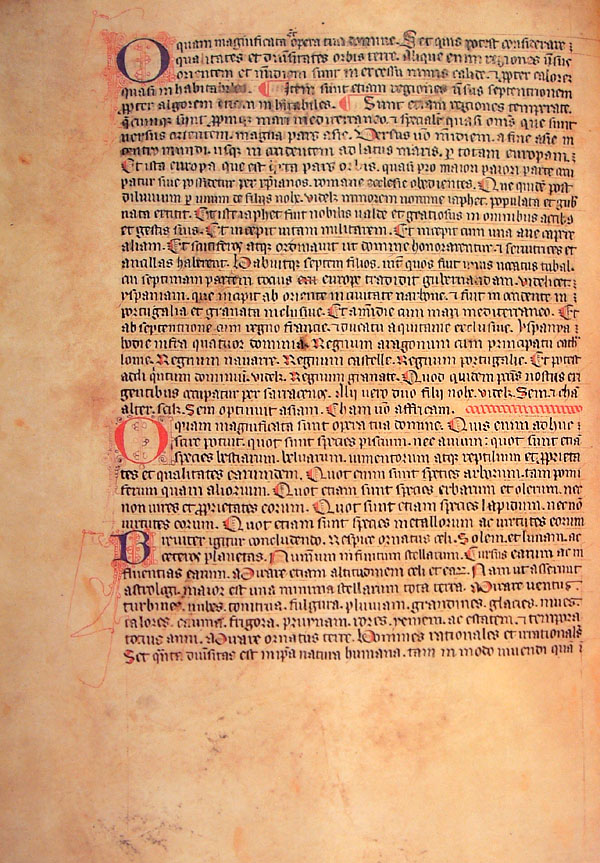 O quam magnificata opera tua domine. Set quis potest considerare
qualitates et diusitates orbis terre. Alique enim regiones usus
orientem et meridiem sunt in excessu nimis calide. ppter calorem
quasi inhabitabiles. Item sunt etiam regiones usus septentrionem
ppter algorem inhabiles. Sunt etiam regiones temperate.
sunt ppinque mari mediterraneo. et specialiter quasi omnes que sunt
uersus orientem. magna pars asie. Versus uo meridiem. a fine asie in
centro mundi. usque in occidentem ad latus maris. et totam europam.
Et ista europa que est pars orbis. quasi pro maiori parte
patur siue possidetur per xpianos. romane ecclesie obedientes. Que quidem post
diluuium per unum de filiis noe. videlicet minorem nomine iaphet. populata et gub
nata extitit. Et iste iaphet fuit nobilis ualde et graciosus in omnibus actibus
et gestis suis. Et incepit uitam militarem. Et incepit cum una aue capere
aliam. Et scutiferos atque ordinauit ut domine honorarentur. et seruitrices et
ancillas haberent. Habuitque septem filios. inter quos fuit unus uocatus tubal.
cui septimam partem tocius europe tradidit gubernandam. videlicet.
yspaniam. que incipit ab oriente in ciuitate narbone. et finit in occidente in
portugalia et granata inclusiue. Et a meridie cum mari mediterraneo. Et
ab septentrione cum regno francie. et ducatu aquitanie exclusiue. yspania
hodie infra quatuor dominia. Regnum aragonum cum principatu cath
lonie. Regnum nauarre. Regnum castelle. Regnum portugalie. Et potest
addi quintum dominium. videlicet. Regnum granate. Quod quidem peccatis nostris exi
gentibus occupatur per sarracenos. Alii uero duo filii noe. videlicet. Sem. et cha
alter. scilicet. Sem optinuit asiam. Cham uo affricam.
O quam magnificata sunt opera tua domine. Quis enim adhuc
scire potuit. quot sunt species piscium. nec auium. quot sunt etiam
species bestiarum. beluarum. iumentorum atque reptilium et proprieta
tes et qualitates earumdem. Quot enim sunt species arborum. tam pomi
ferum quam aliorum. Quot etiam sunt species erbarum et olerum. nec
non uires et pprietates eorum. Quot sunt etiam species lapidum. necnon
uirtutes eorum. Quot etiam sunt species metallorum ac virtutes eorum
Breuiter igitur concludendo. Respice ornatus celi. Solem. et lunam. ac
ceteros planetas. Numerum infinitum stellarum. Cursus earum ac in
fluentias earum. Mirare etiam altitudinem celi et earum. Nam ut asserunt
astrologi. maior est una minima stellarum tota terra. Mirare uentus.
turbines. nubes. tonitrua. fulgura. pluuiam. grandines. glacies. niues.
calores. caumata. frigora. pruinam. rores. yemem. ac estatem. et tempora
tocius anni. Mirare ornatus terre. Homines rationales et irrationales
Set quanta diuersitas est in ipsa natura humana. tam in modo uiuendi quam